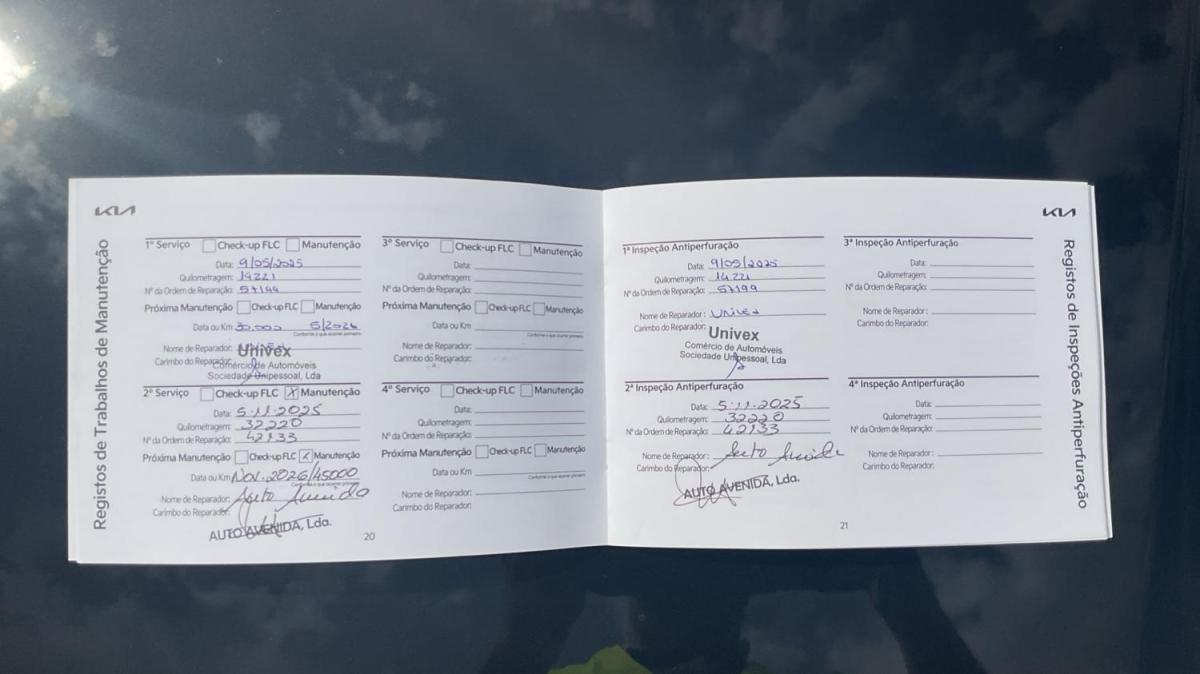 KIA
Registos de Trabalhos de Manutenção
1º Serviço Check-up FLC Manutenção
Data: 9/05/2025
Quilometragem: 14221
Nº da Ordem de Reparação: 57199
Próxima Manutenção Check-up FLC Manutenção
Data ou Km 30.000 5/2026
Conforme o que ocorrer primeiro
Nome de Reparador:
Carimbo do Reparador:
Univex
Comércio de Automóveis
Sociedade Unipessoal, Lda
2º Serviço Check-up FLC X Manutenção
Data: 5.11.2025
Quilometragem: 32220
Nº da Ordem de Reparação: 42133
Próxima Manutenção Check-up FLC X Manutenção
Data ou Km Nov. 2026/45000
Conforme o que ocorrer primeiro
Nome de Reparador: Auto
Carimbo do Reparador:
AUTO AVENIDA, Lda.
20
3º Serviço Check-up FLC Manutenção
Data:
Quilometragem:
Nº da Ordem de Reparação:
Próxima Manutenção Check-up FLC Manutenção
Data ou Km
Conforme o que ocorrer primeiro
Nome de Reparador:
Carimbo do Reparador:
4º Serviço Check-up FLC Manutenção
Data:
Quilometragem:
Nº da Ordem de Reparação:
Próxima Manutenção Check-up FLC Manutenção
Data ou Km
Conforme o que ocorrer primeiro
Nome de Reparador:
Carimbo do Reparador:
1ª Inspeção Antiperfuração
Data: 9/05/2025
Quilometragem: 14221
Nº da Ordem de Reparação: 57199
Nome de Reparador: Univex
Carimbo do Reparador:
Univex
Comércio de Automóveis
Sociedade Unipessoal, Lda
2ª Inspeção Antiperfuração
Data: 5.11.2025
Quilometragem: 32220
Nº da Ordem de Reparação: 42133
Nome de Reparador: Auto
Carimbo do Reparador:
AUTO AVENIDA, Lda.
21
3ª Inspeção Antiperfuração
Data:
Quilometragem:
Nº da Ordem de Reparação:
Nome de Reparador:
Carimbo do Reparador:
4ª Inspeção Antiperfuração
Data:
Quilometragem:
Nº da Ordem de Reparação:
Nome de Reparador:
Carimbo do Reparador:
KIA
Registos de Inspeções Antiperfuração